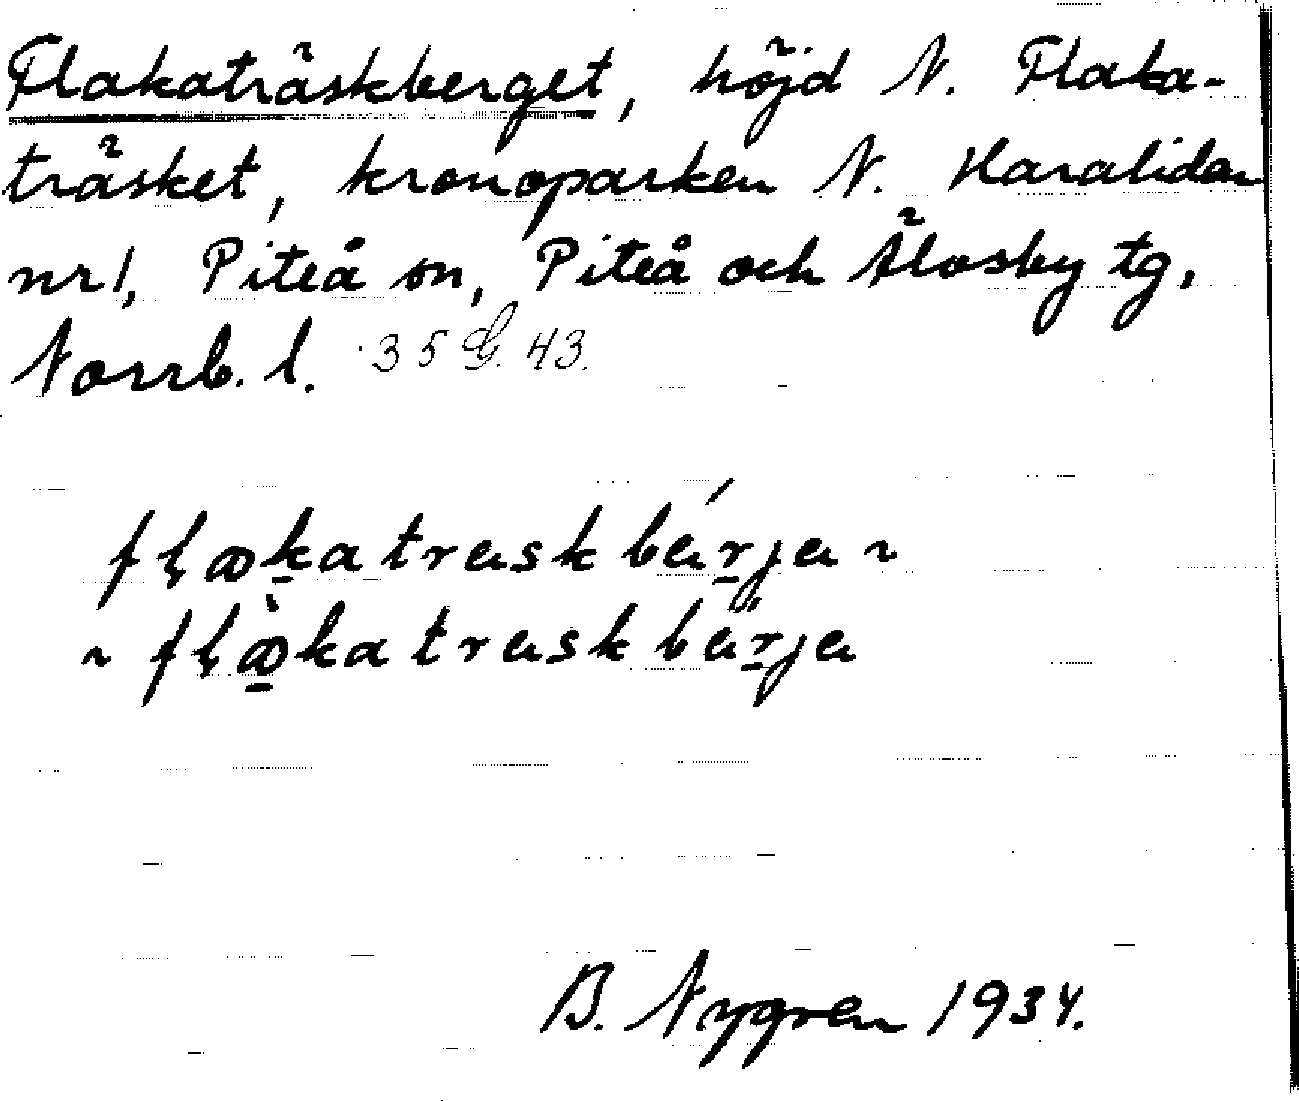 Flakaträskberget, höjd N. Flaka-
träsket, kronoparken N. Haraliden
nr 1, Piteå sn, Piteå och Älvsby tg,
Norrb. l. 35 G. 43.
B. Nygren 1934.